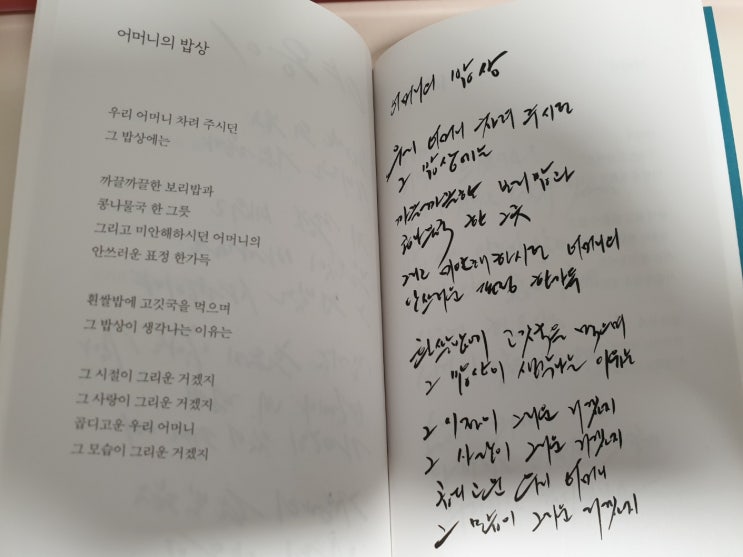 어머니의 밥상
우리 어머니 차려 주시던
그 밥상에는
까끌까끌한 보리밥과
콩나물국 한 그릇
그리고 미안해하시던 어머니의
안쓰러운 표정 한가득
흰쌀밥에 고깃국을 먹으며
그 밥상이 생각나는 이유는
그 시절이 그리운 거겠지
그 사랑이 그리운 거겠지
곱디고운 우리 어머니
그 모습이 그리운 거겠지
어머니의 밥상
우리 어머니 차려 주시던
그 밥상에는
까끌까끌한 보리밥과
콩나물국 한 그릇
그리고 미안해하시던 어머니의
안쓰러운 표정 한가득
흰쌀밥에 고깃국을 먹으며
그 밥상이 생각나는 이유는
그 그리운 거겠지
그 사랑이 그리운 거겠지
곱디고운 우리 어머니
그 모습이 그리운 거겠지